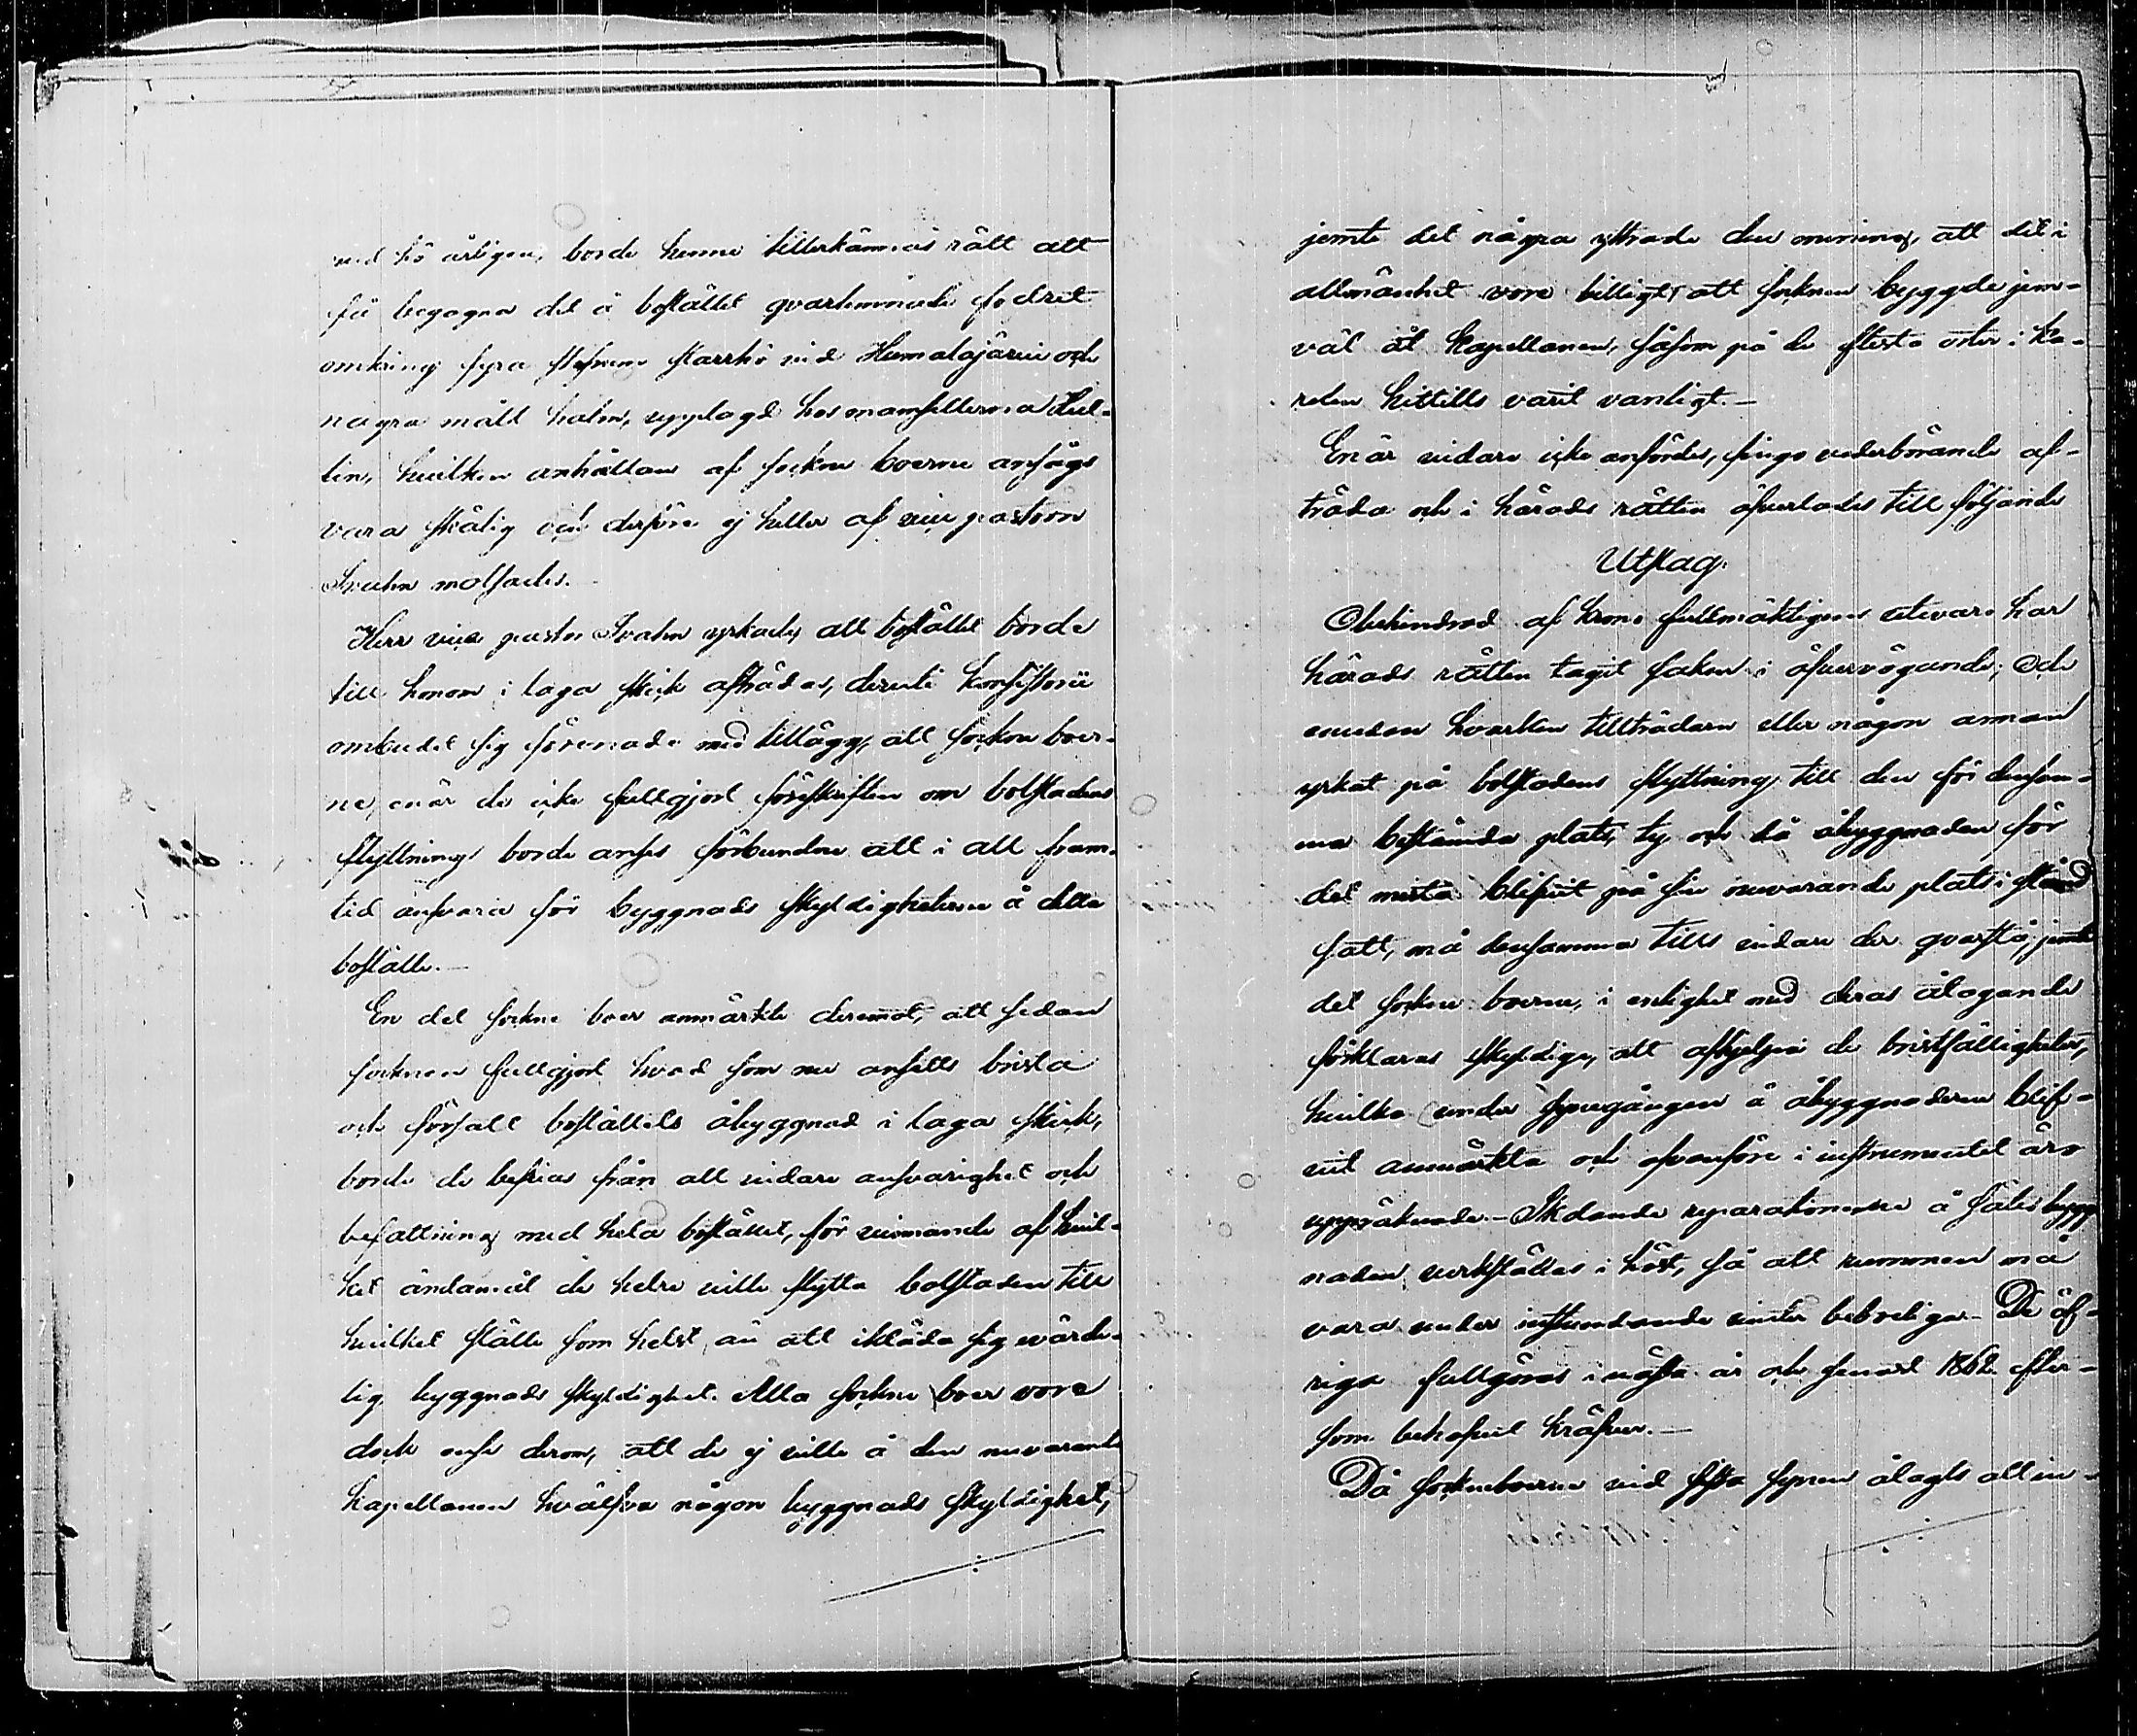 med hö årligen, borde henne tillerkännas rätt att
få begagna det å bostället qvarlemnade fodret
omkring fyra skrinne starrhö vid Humalojärvi och
några mått halm, upplagd hos mamsellerna
lin, hvilken anhållan af sockne boerne ansågs
vara skälig och derföre ej heller af vice pastorn
Svahn motsades.
Herr vice pastor Svahn yrkade, att bostället borde
till honom i laga skick afträdas, deruti konsistorii
ombudet sig förenade med tillägg, att socknе boer-
ne, enär de icke fullgjort föreskriften om bolstadens
flyttning borde anses förbundne att i all fram-
tid ansvara för byggnads skyldigheterne å detta
boställe.—
En del sockne boer anmärkte deremot, att sedan
socknen fullgjort hvad som nu ansetts brista
och försatt boställets åbyggnad i laga skick,
borde de befrias från all vidare ansvarighet och
befattning med hela bostället, för vinnande af hvil-
ket ändamål de helre ville flytta bolstaden till
hvilket ställe som helst, än att ikläda sig wärde-
lig byggnads skyldighet. Alla sockne boer vore
dock ense derom, att de ej ville å den nuvarande
Kapellanen hvälfva någon byggnads skyldighet,
jemte det några yttrade den mening, att det i
allmänhet vore billigt att socknen byggde jem-
väl åt Kapellanen, såsom på de flesta orter i Ka-
relen hittills varit vanligt.—
Enär vidare icke anfördes, fingo vederbörande af-
träda och i härads rätten öfverlades till följande
Utslag.
Obehindrad af krono fullmäktigens utevaro har
härads rätten tagit saken i öfvervägande; Och
emedan hvarken tillträdaren eller någon annan
yrkat på bolstadens flyttning till den för densam-
ma bestämda plats, ty och då åbyggnaden för
det mesta blifvit på sin nuvarande plats i stånd
satt, må densamma tills vidare der qvarstå, jemte
det sockne boerne, i enlighet med deras åtagande
förklaras skyldige, att afhjelpa de bristfälligheter,
hvilka under synegången å åbyggnaderne blif-
vit anmärkta och ofvanföre i instrumentet äro
uppräknade.— Skolande reparationerne å sätes bygg
naden verkställas i höst, så att rummen må
vara under instundande vinter beboeliga.— De öf-
riga fullgöras i nästa år och senast 1862 efter-
som behofvet kräfver.—
Då sockneboerne vid sista synen ålagts att in-